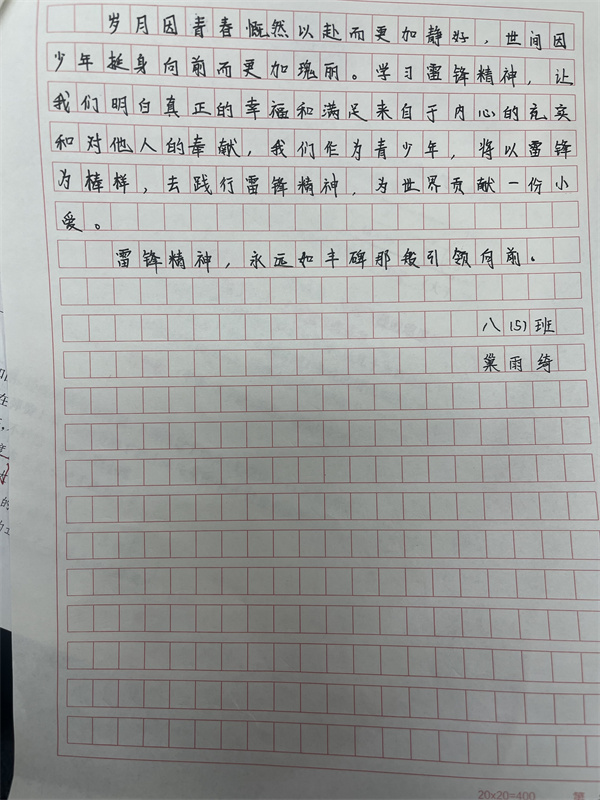 岁月因青春慨然以赴而更加静好，世间因
少年挺身向前而更加瑰丽。学习雷锋精神，让
我们明白真正的幸福和满足来自于内心的充实
和对他人的奉献，我们作为青少年，将以雷锋
为榜样，去践行雷锋精神，为世界贡献一份小
爱。
雷锋精神，永远如丰碑那般引领向前。
八(5)班
巢雨绮
20×20=400